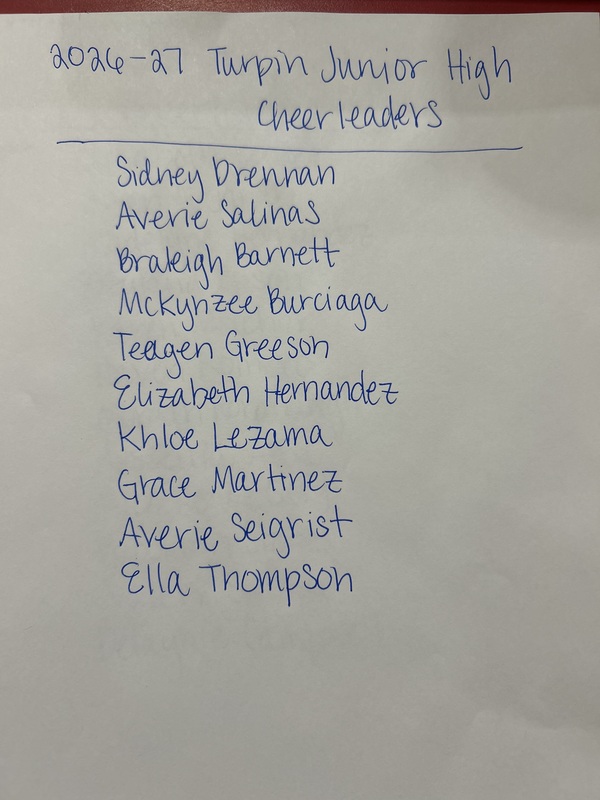 2026-27 Turpin Junior High
Cheerleaders
Sidney Drennan
Averie Salinas
Braleigh Barnett
McKynzee Burciaga
Teagen Greeson
Elizabeth Hernandez
Khloe Lezama
Grace Martinez
Averie Seigrist
Ella Thompson